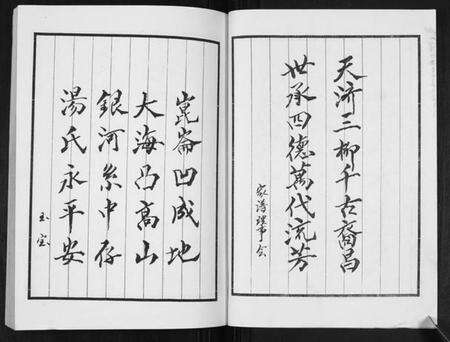 天濟三柳千古裔昌
世承四德萬代流芳
家谱理事会
崑崙凹成地
大海凸高山
銀河系中存
湯氏永平安
玉宝